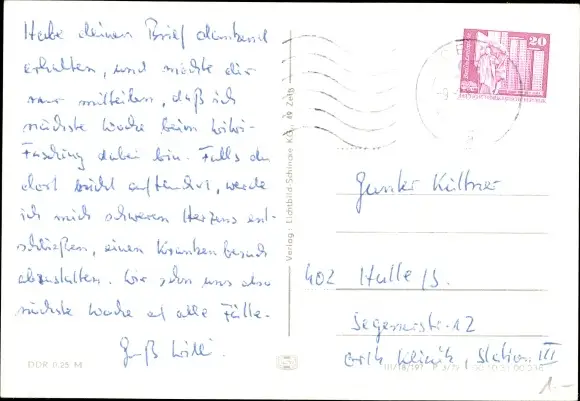 Habe deinen Brief dankend
erhalten, und möchte dir
nur mitteilen, daß ich
nächste Woche beim Wiwi-
Fasching dabei bin. Falls du
dort nicht auftauchst, werde
ich mich schweren Herzens ent-
schließen, einen Krankenbesuch
abzustatten. Wir sehn uns also
nächste Woche auf alle Fälle.
Gruß Willi.
DDR 0.25 M
Verlag: Lichtbild-Schincke KG, 49 Zeitz
20
Gunter Küttner
402 Halle/S.
Segenerstr. 12
orth. Klinik, Station III
III/18/197
1.-